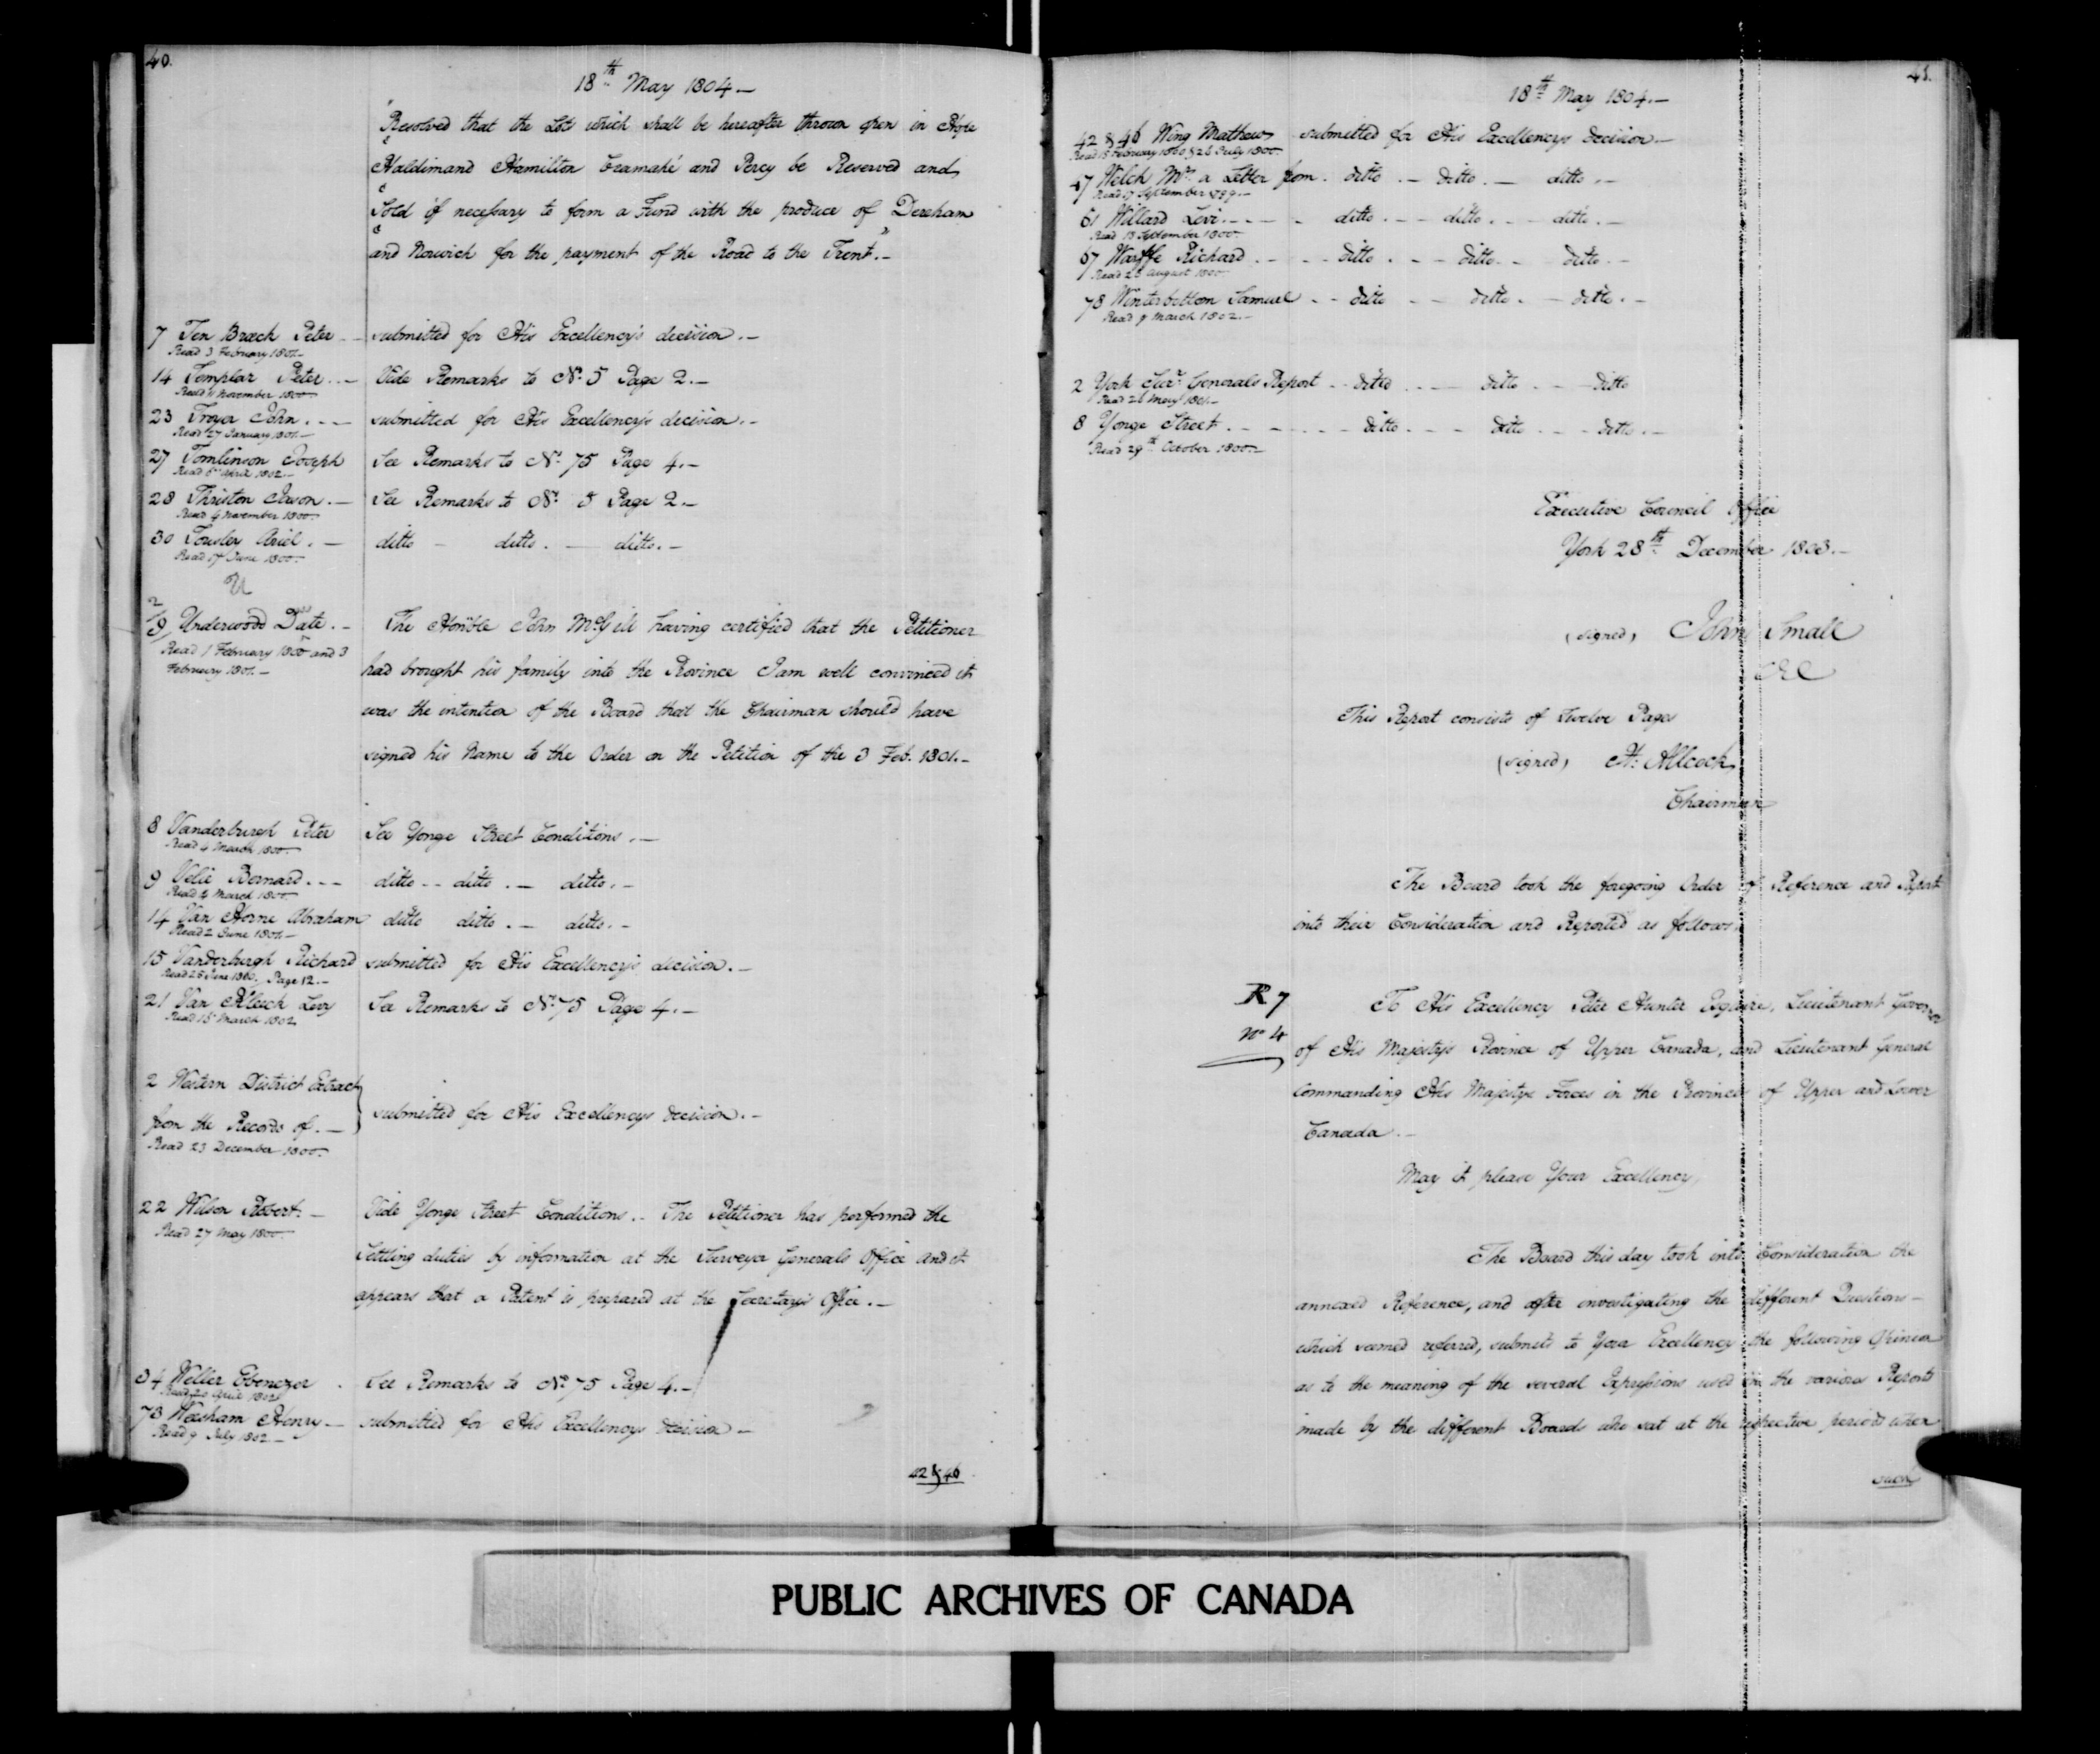 40.
18th May 1804.—
"Resolved that the Lots which shall be hereafter thrown open in Hope
"Haldimand Hamilton Cramahé and Percy be Reserved and
"Sold if necessary to form a Fund with the produce of Dereham
"and Norwich for the payment of the Road to the Trent."—
7 Ten Broeck Peter -- submitted for His Excellency's decision.—
Read 3 February 1801.—
14 Templar Peter ..— Vide Remarks to No. 5 Page 2.—
Read 11 November 1800—
23 Troyer John . — — submitted for His Excellency's decision.—
Read 27 January 1801.—
27 Tomlinson Joseph See Remarks to No. 75 Page 4.—
Read 6 April 1802—
28 Thriston Jason .— See Remarks to No. 5 Page 2.—
Read 4 November 1800—
30 Towsler Ariel . — ditto — ditto . — ditto.—
Read 17 June 1800—
U
2
/9/ Underwood Date . — The Honble John McGill having certified that the Petitioner
Read 1 February 1800 and 3
February 1801.—
had brought his family into the Province I am well convinced it
was the intention of the Board that the Chairman should have
signed his Name to the Order on the Petition of the 3 Feb. 1801.—
8 Vanderburgh Peter See Yonge Street Conditions .—
Read 4 March 1800—
9 Velie Bernard . - - ditto -- ditto .— ditto.—
Read 4 March 1800.
14 Van Horne Abraham ditto ditto .— ditto.—
Read 2 June 1801.—
15 Vanderburgh Richard submitted for His Excellency's decision.—
Read 25 June 1800, Page 12.—
21 Van Kleeck Levy See Remarks to No. 75 Page 4.—
Read 15 March 1802
2 Western District Extract
from the Records of .— } submitted for His Excellencys decision.—
Read 23 December 1800.
22 Wilson Robert. — Vide Yonge Street Conditions.— The Petitioner has performed the
Read 27 May 1800—
Settling duties by information at the Surveyor Generals Office and it
appears that a Patent is prepared at the Secretary's Office.—
34 Weller Ebenezer . See Remarks to No. 75 Page 4.—
Read 20 April 1802
73 Weesham Henry — submitted for His Excellencys decision—
Read 9 July 1802—
42 & 46
41.
18th May 1804.—
42 & 46 Wing Mathew submitted for His Excellencys decision—
Read 15 February 1800 & 26 July 1800.
47 Welch Mr. a Letter from . ditto .— ditto .— ditto .—
Read 17 September 1799.—
61 Willard Levi . - - - - ditto . - - ditto . - - ditto.—
Read 13 September 1800.
67 Warffe Richard . - - - ditto . - - ditto. - - ditto.—
Read 26 August 1800
78 Winterbottom Samuel - - ditto - - ditto . — ditto.—
Read 9 March 1802.—
2 York Surr. Generals Report - - ditto . - — ditto - — ditto
Read 26 May 1801.—
8 Yonge Street . - - - - - ditto . - - - ditto . - - ditto.—
Read 29th October 1800.—
Executive Council Office
York 28th December 1803.—
(signed) John Small
CEC
This Report consists of Twelve Pages
(signed) H: Allcock
Chairman
The Board took the foregoing Order of Reference and Report
into their Consideration and Reported as follows.
R 7
No 4
To His Excellency Peter Hunter Esquire, Lieutenant Governor
of His Majesty's Province of Upper Canada, and Lieutenant General
Commanding His Majestys Forces in the Province of Upper and Lower
Canada .—
May it please Your Excellency,
The Board this day took into Consideration the
annexed Reference, and after investigating the different Questions—
which seemed referred, submits to Your Excellency the following Opinion
as to the meaning of the several Expressions used in the various Reports
made by the different Boards who sat at the respective periods when
such
PUBLIC ARCHIVES OF CANADA